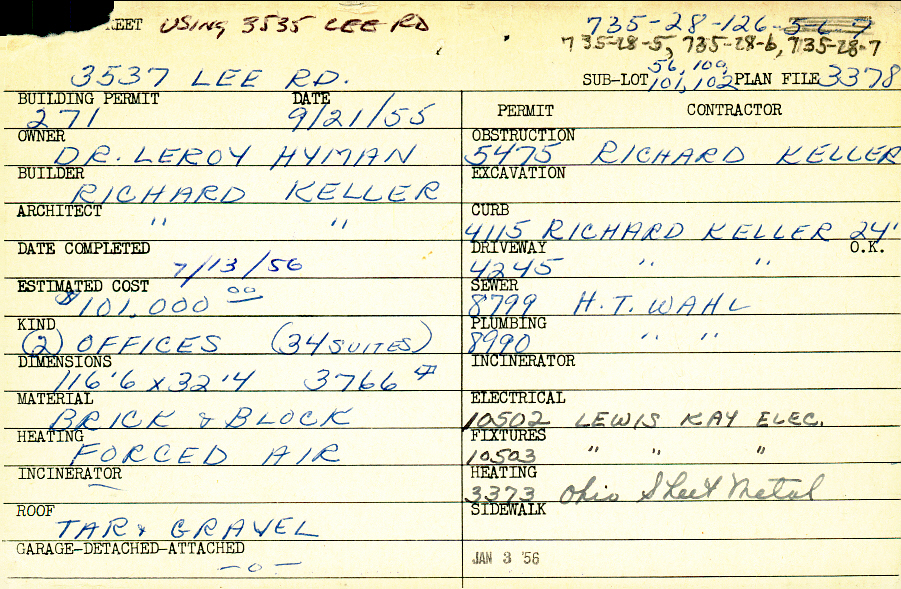 REET USING 3535 LEE RD
735-28-126
735-28-5, 735-28-6, 735-28-7
3537 LEE RD.
56, 100,
SUB-LOT 101, 102 PLAN FILE 3378
BUILDING PERMIT DATE
271 9/21/55
OWNER
DR. LEROY HYMAN
BUILDER
RICHARD KELLER
ARCHITECT
" "
DATE COMPLETED
7/13/56
ESTIMATED COST
$101,000 00
KIND
(2) OFFICES (34 SUITES)
DIMENSIONS
116'6 x 32'4 3766
MATERIAL
BRICK & BLOCK
HEATING
FORCED AIR
INCINERATOR
—
ROOF
TAR & GRAVEL
GARAGE-DETACHED-ATTACHED
-0-
PERMIT CONTRACTOR
OBSTRUCTION
5475 RICHARD KELLER
EXCAVATION
CURB
4115 RICHARD KELLER 24'
DRIVEWAY O.K.
4245 " "
SEWER
8799 H.T. WAHL
PLUMBING
8990 " "
INCINERATOR
ELECTRICAL
10502 LEWIS KAY ELEC.
FIXTURES
10503 " " "
HEATING
3373 Ohio Sheet Metal
SIDEWALK
JAN 3 '56